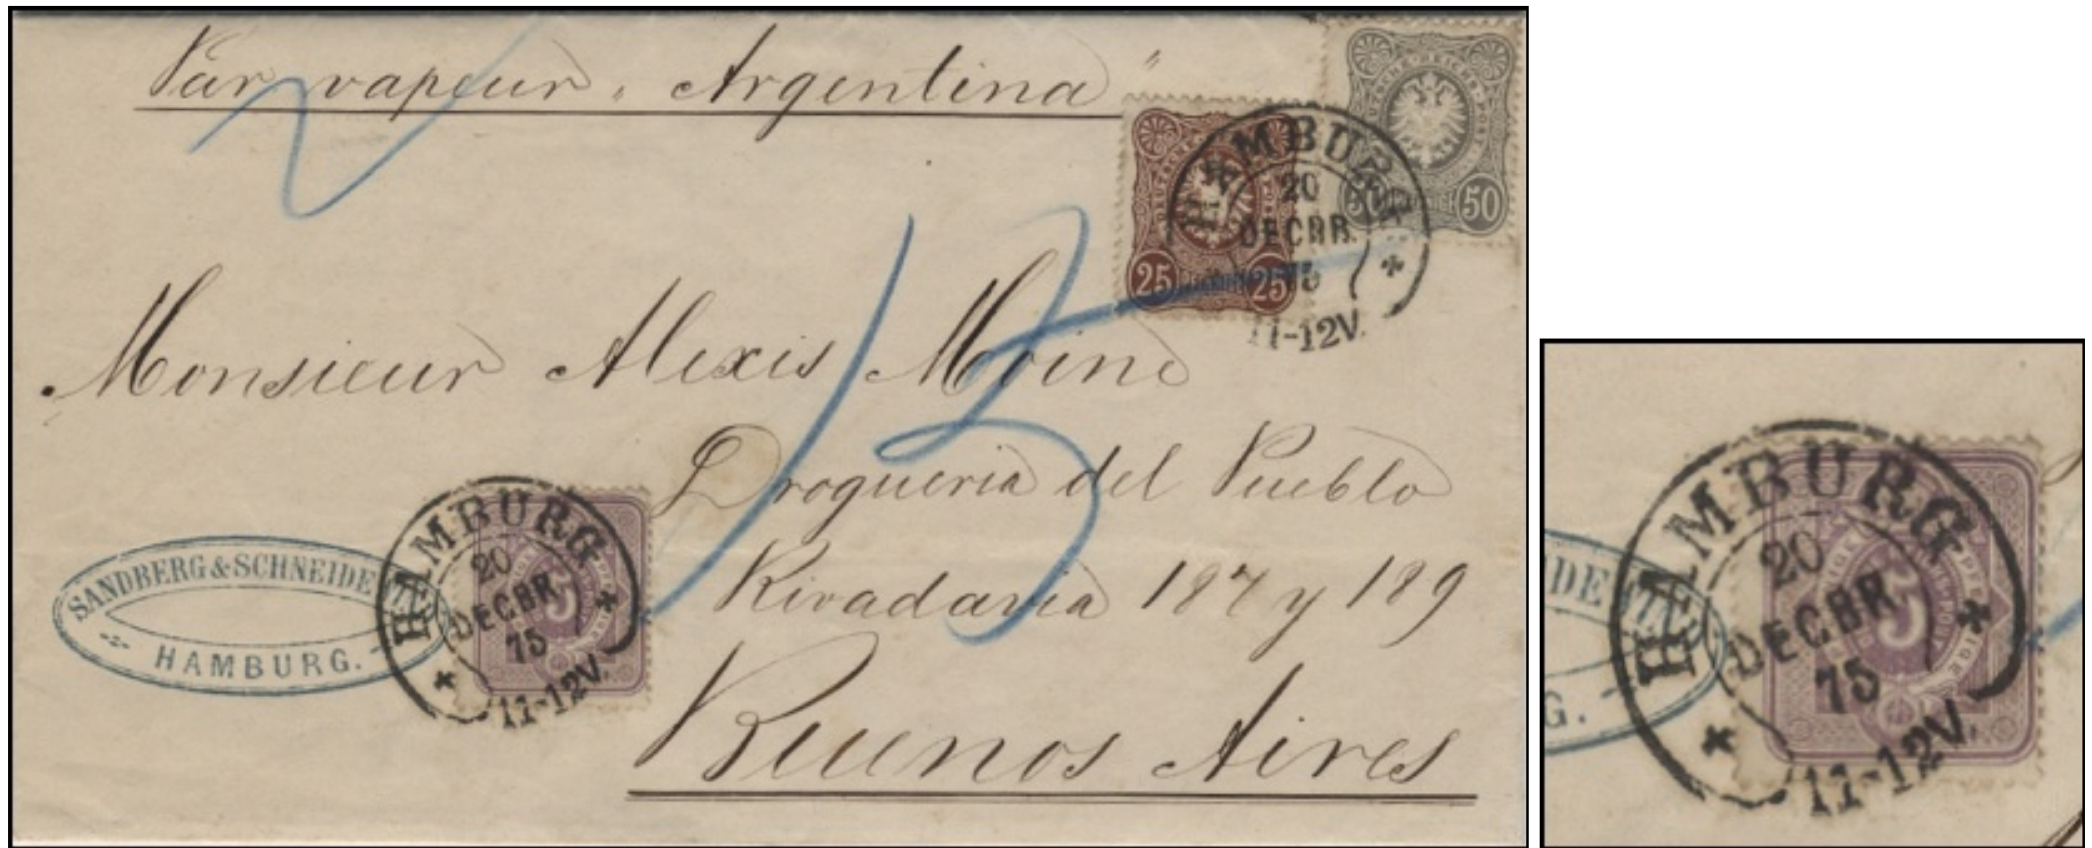 Par vapeur „Argentina"
50
HAMBURG
20
DECBR.
75
11-12V.
25 25
Monsieur Alexis Moine
Drogueria del Pueblo
Rivadavia 187 y 189
Buenos Aires
15
SANDBERG & SCHNEIDEWIN
HAMBURG.
HAMBURG
20
DECBR.
75
11-12V.
5
HAMBURG
20
DECBR.
75
11-12V.
5